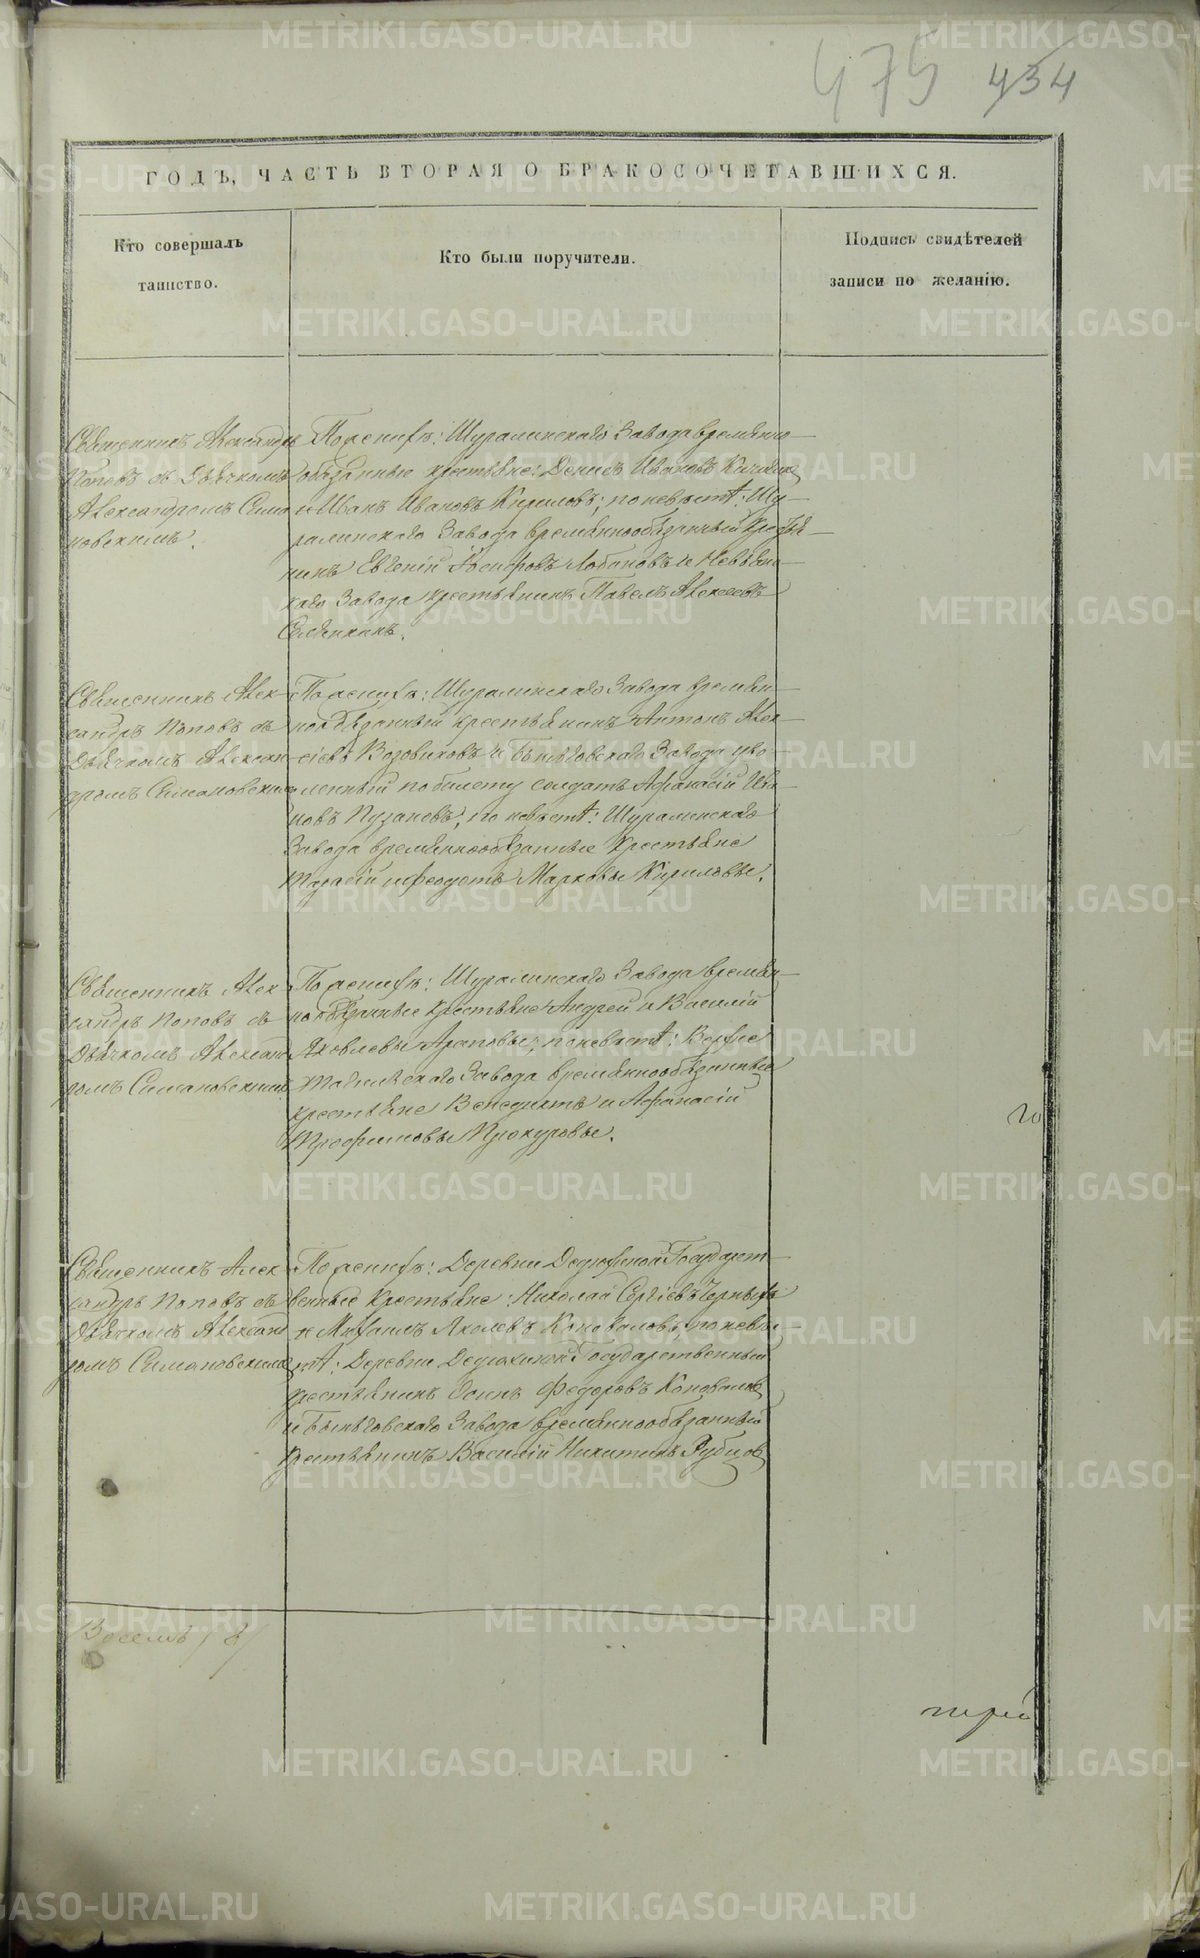 475 434
ГОДЪ, ЧАСТЬ ВТОРАЯ О БРАКОСОЧЕТАВШИХСЯ.
Кто совершалъ
таинство.
Кто были поручители.
Подпись свидѣтелей
записи по желанію.
Священникъ Александръ
Поповъ съ Дьячкомъ
Александромъ Сима
новскимъ.
По женихѣ: Шуралинскаго Завода временно
обязанные крестьяне: Денисъ Ивановъ
и Иванъ Ивановъ Кириловъ; по невѣстѣ: Шу-
ралинскаго Завода временнообязанный кресть-
нинъ Евгеній Іосифовъ Лобановъ и Невьянс
каго Завода крестьянинъ Павелъ Алексѣевъ
Священникъ Алек
сандръ Поповъ съ
Дьячкомъ Алексан
дромъ Симановскимъ
По женихѣ: Шуралинскаго Завода времен
нообязанный крестьянинъ Антонъ Алек-
сіевъ Возовиковъ и Быньговскаго Завода уво-
ленный по билету солдатъ Афанасій Ива
новъ Пузаневъ; по невѣстѣ: Шуралинскаго
Завода временнообязанные крестьяне
Тарасій и Феодотъ Марковы Кириловы.
Священникъ Алек
сандръ Поповъ съ
Дьячкомъ Алексан
ромъ Симановскимъ
По женихѣ: Шуралинскаго Завода времен
нообязанные крестьяне Андрей и Василій
Яковлевы Араповы; по невѣстѣ: Верхне
Тагильскаго Завода временнообязанные
крестьяне Венедиктъ и Афанасій
Трефиловы Прокуровы.
Священникъ Алек
сандръ Поповъ съ
Дьячкомъ Алексан
ромъ Симановскимъ
По женихѣ: Деревни Дедюхиной Государст
венные крестьяне: Николай Сергіевъ Черныхъ
и Михаилъ Яковлевъ Коноваловъ; по невѣ-
стѣ: Деревни Дедюхиной Государственный
крестьянинъ Осипъ Федоровъ Коноваловъ
и Быньговскаго Завода временнообязанный
крестьянинъ Василій Никитинъ Рубцовъ
Восемь /8/
METRIKI.GASO-URAL.RU